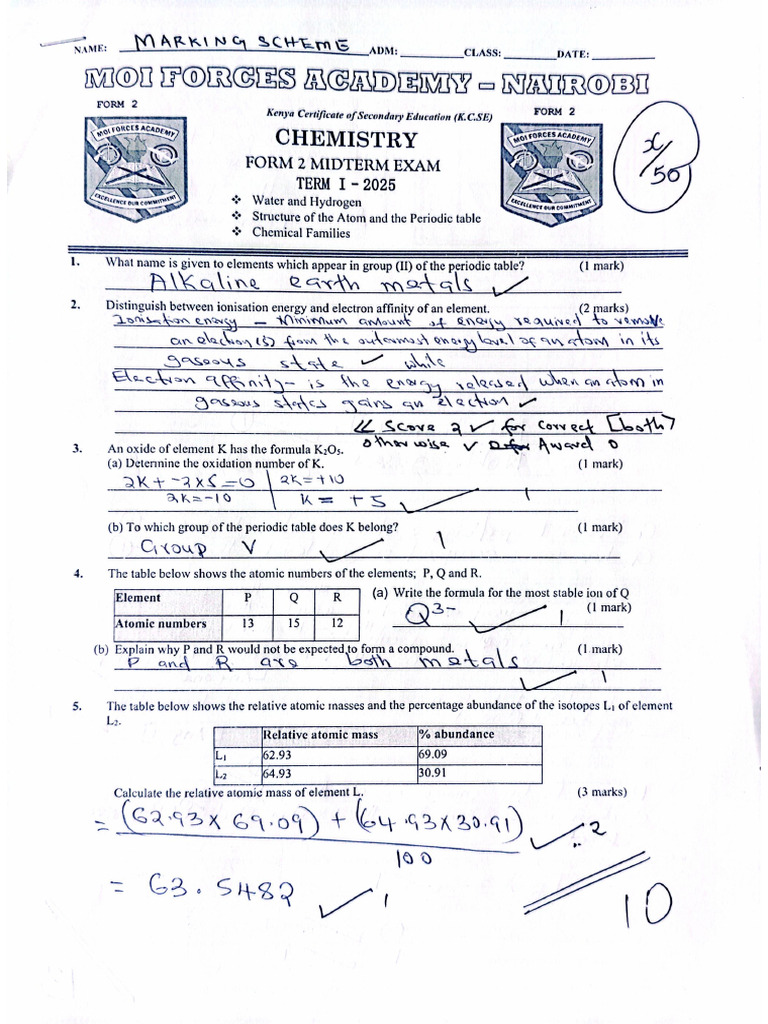 NAME: MARKING SCHEME ADM: CLASS: DATE:
MOI FORCES ACADEMY – NAIROBI
FORM 2
Kenya Certificate of Secondary Education (K.C.SE)
FORM 2
MOI FORCES ACADEMY
EXCELLENCE OUR COMMITMENT
CHEMISTRY
FORM 2 MIDTERM EXAM
TERM I - 2025
❖ Water and Hydrogen
❖ Structure of the Atom and the Periodic table
❖ Chemical Families
MOI FORCES ACADEMY
EXCELLENCE OUR COMMITMENT
x/50
1. What name is given to elements which appear in group (II) of the periodic table? (1 mark)
Alkaline earth metals ✓
2. Distinguish between ionisation energy and electron affinity of an element. (2 marks)
Ionisation energy – Minimum amount of energy required to remove
an electron(s) from the outermost energy level of an atom in its
gaseous state ✓ while
Electron affinity – is the energy released when an atom in
gaseous states gains an electron ✓
Score 2 ✓ for correct [both]
otherwise ✓ Award 0
3. An oxide of element K has the formula K₂O₅.
(a) Determine the oxidation number of K. (1 mark)
2K + -2x5 = 0 | 2K = +10
2K = -10 | K = +5 ✓ 1
(b) To which group of the periodic table does K belong? (1 mark)
Group V ✓ 1
4. The table below shows the atomic numbers of the elements; P, Q and R.
Element P Q R
Atomic numbers 13 15 12
(a) Write the formula for the most stable ion of Q
(1 mark)
Q³⁻ ✓ 1
(b) Explain why P and R would not be expected to form a compound. (1 mark)
P and R are both metals
✓ 1
5. The table below shows the relative atomic masses and the percentage abundance of the isotopes L₁ of element
L₂.
Relative atomic mass % abundance
L₁ 62.93 69.09
L₂ 64.93 30.91
Calculate the relative atomic mass of element L. (3 marks)
= (62.93 x 69.09) + (64.93 x 30.91) ✓ 2
100
= 63.5482 ✓ 1
10